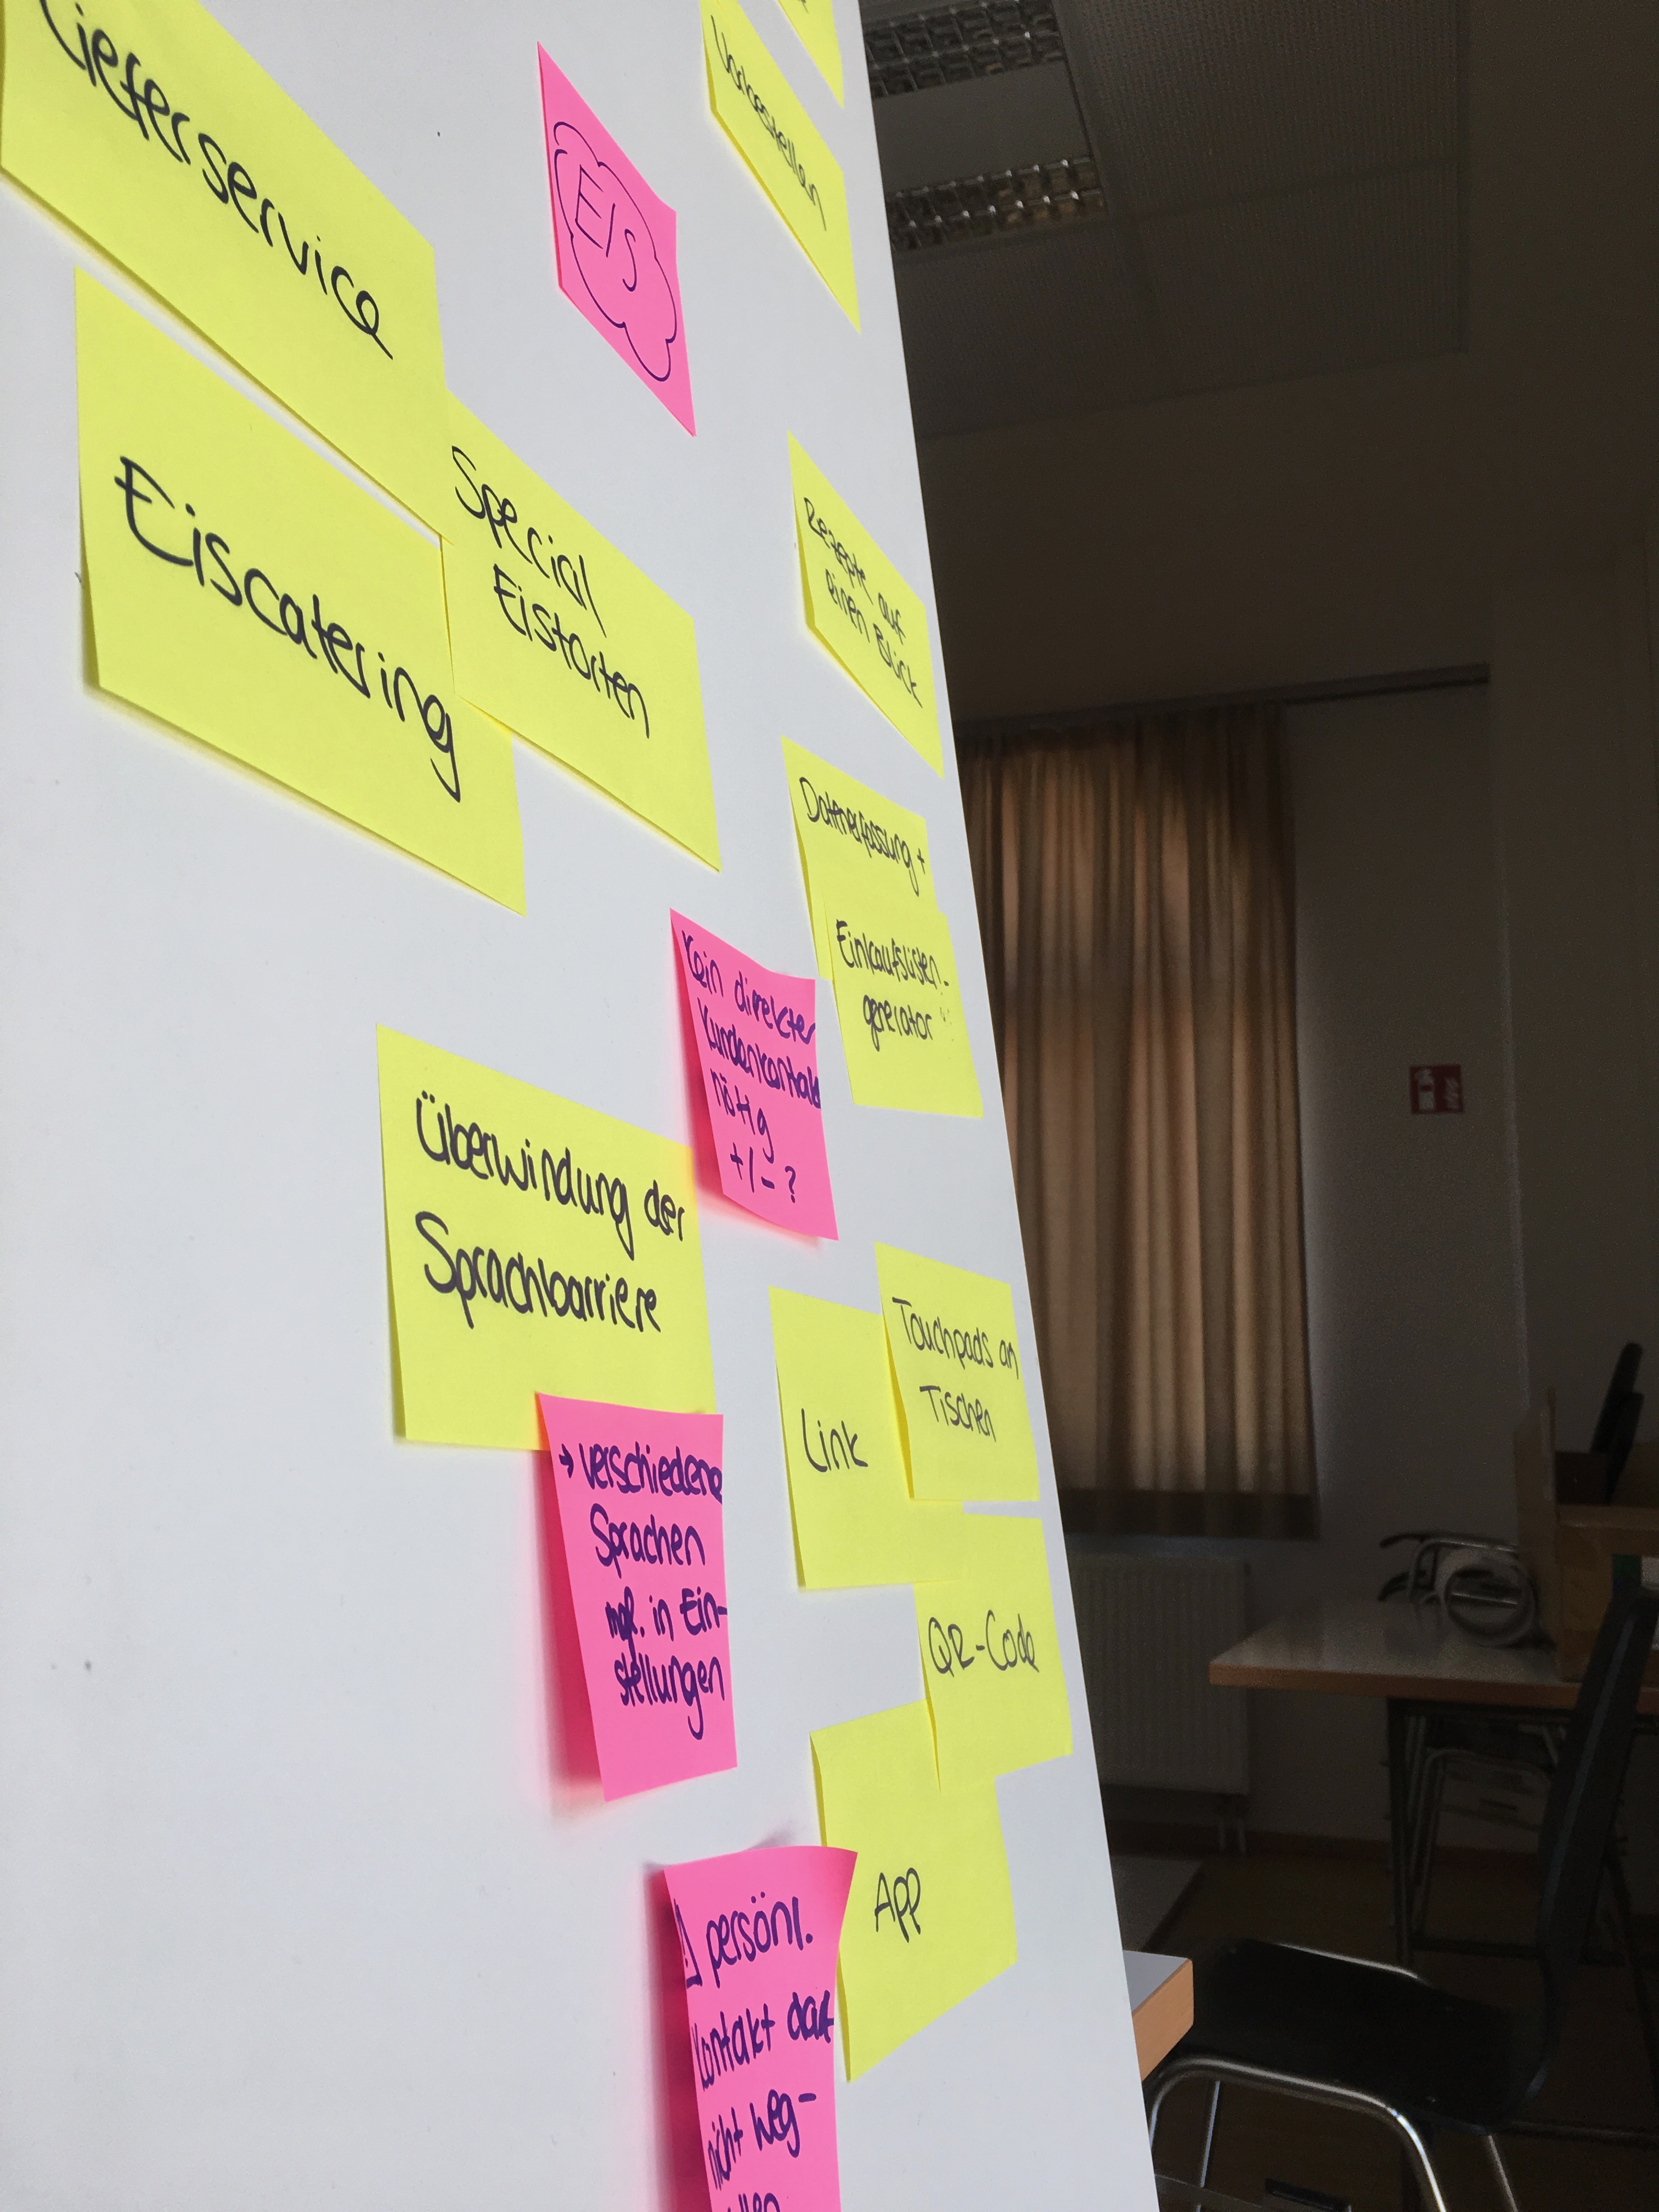 Lieferservice
EIS
Vorbestellen
Eiscatering
Special
Eistorten
Rezepte auf
einen Blick
Datenerfassung +
Einkaufslisten-
generator
Kein direkter
Kundenkontakt
nötig
+/- ?
Überwindung der
Sprachbarriere
→ verschiedene
Sprachen
mgl. in Ein-
stellungen
Link
Touchpads an
Tischen
QR-Code
App
persönl.
Kontakt darf
nicht weg-